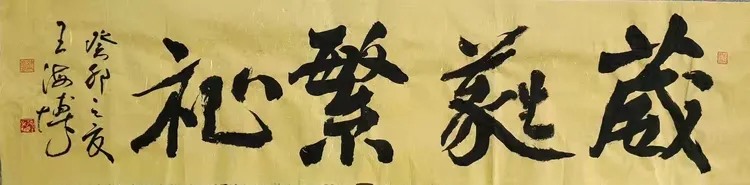 葳蕤繁祉
癸卯之夏
王海博